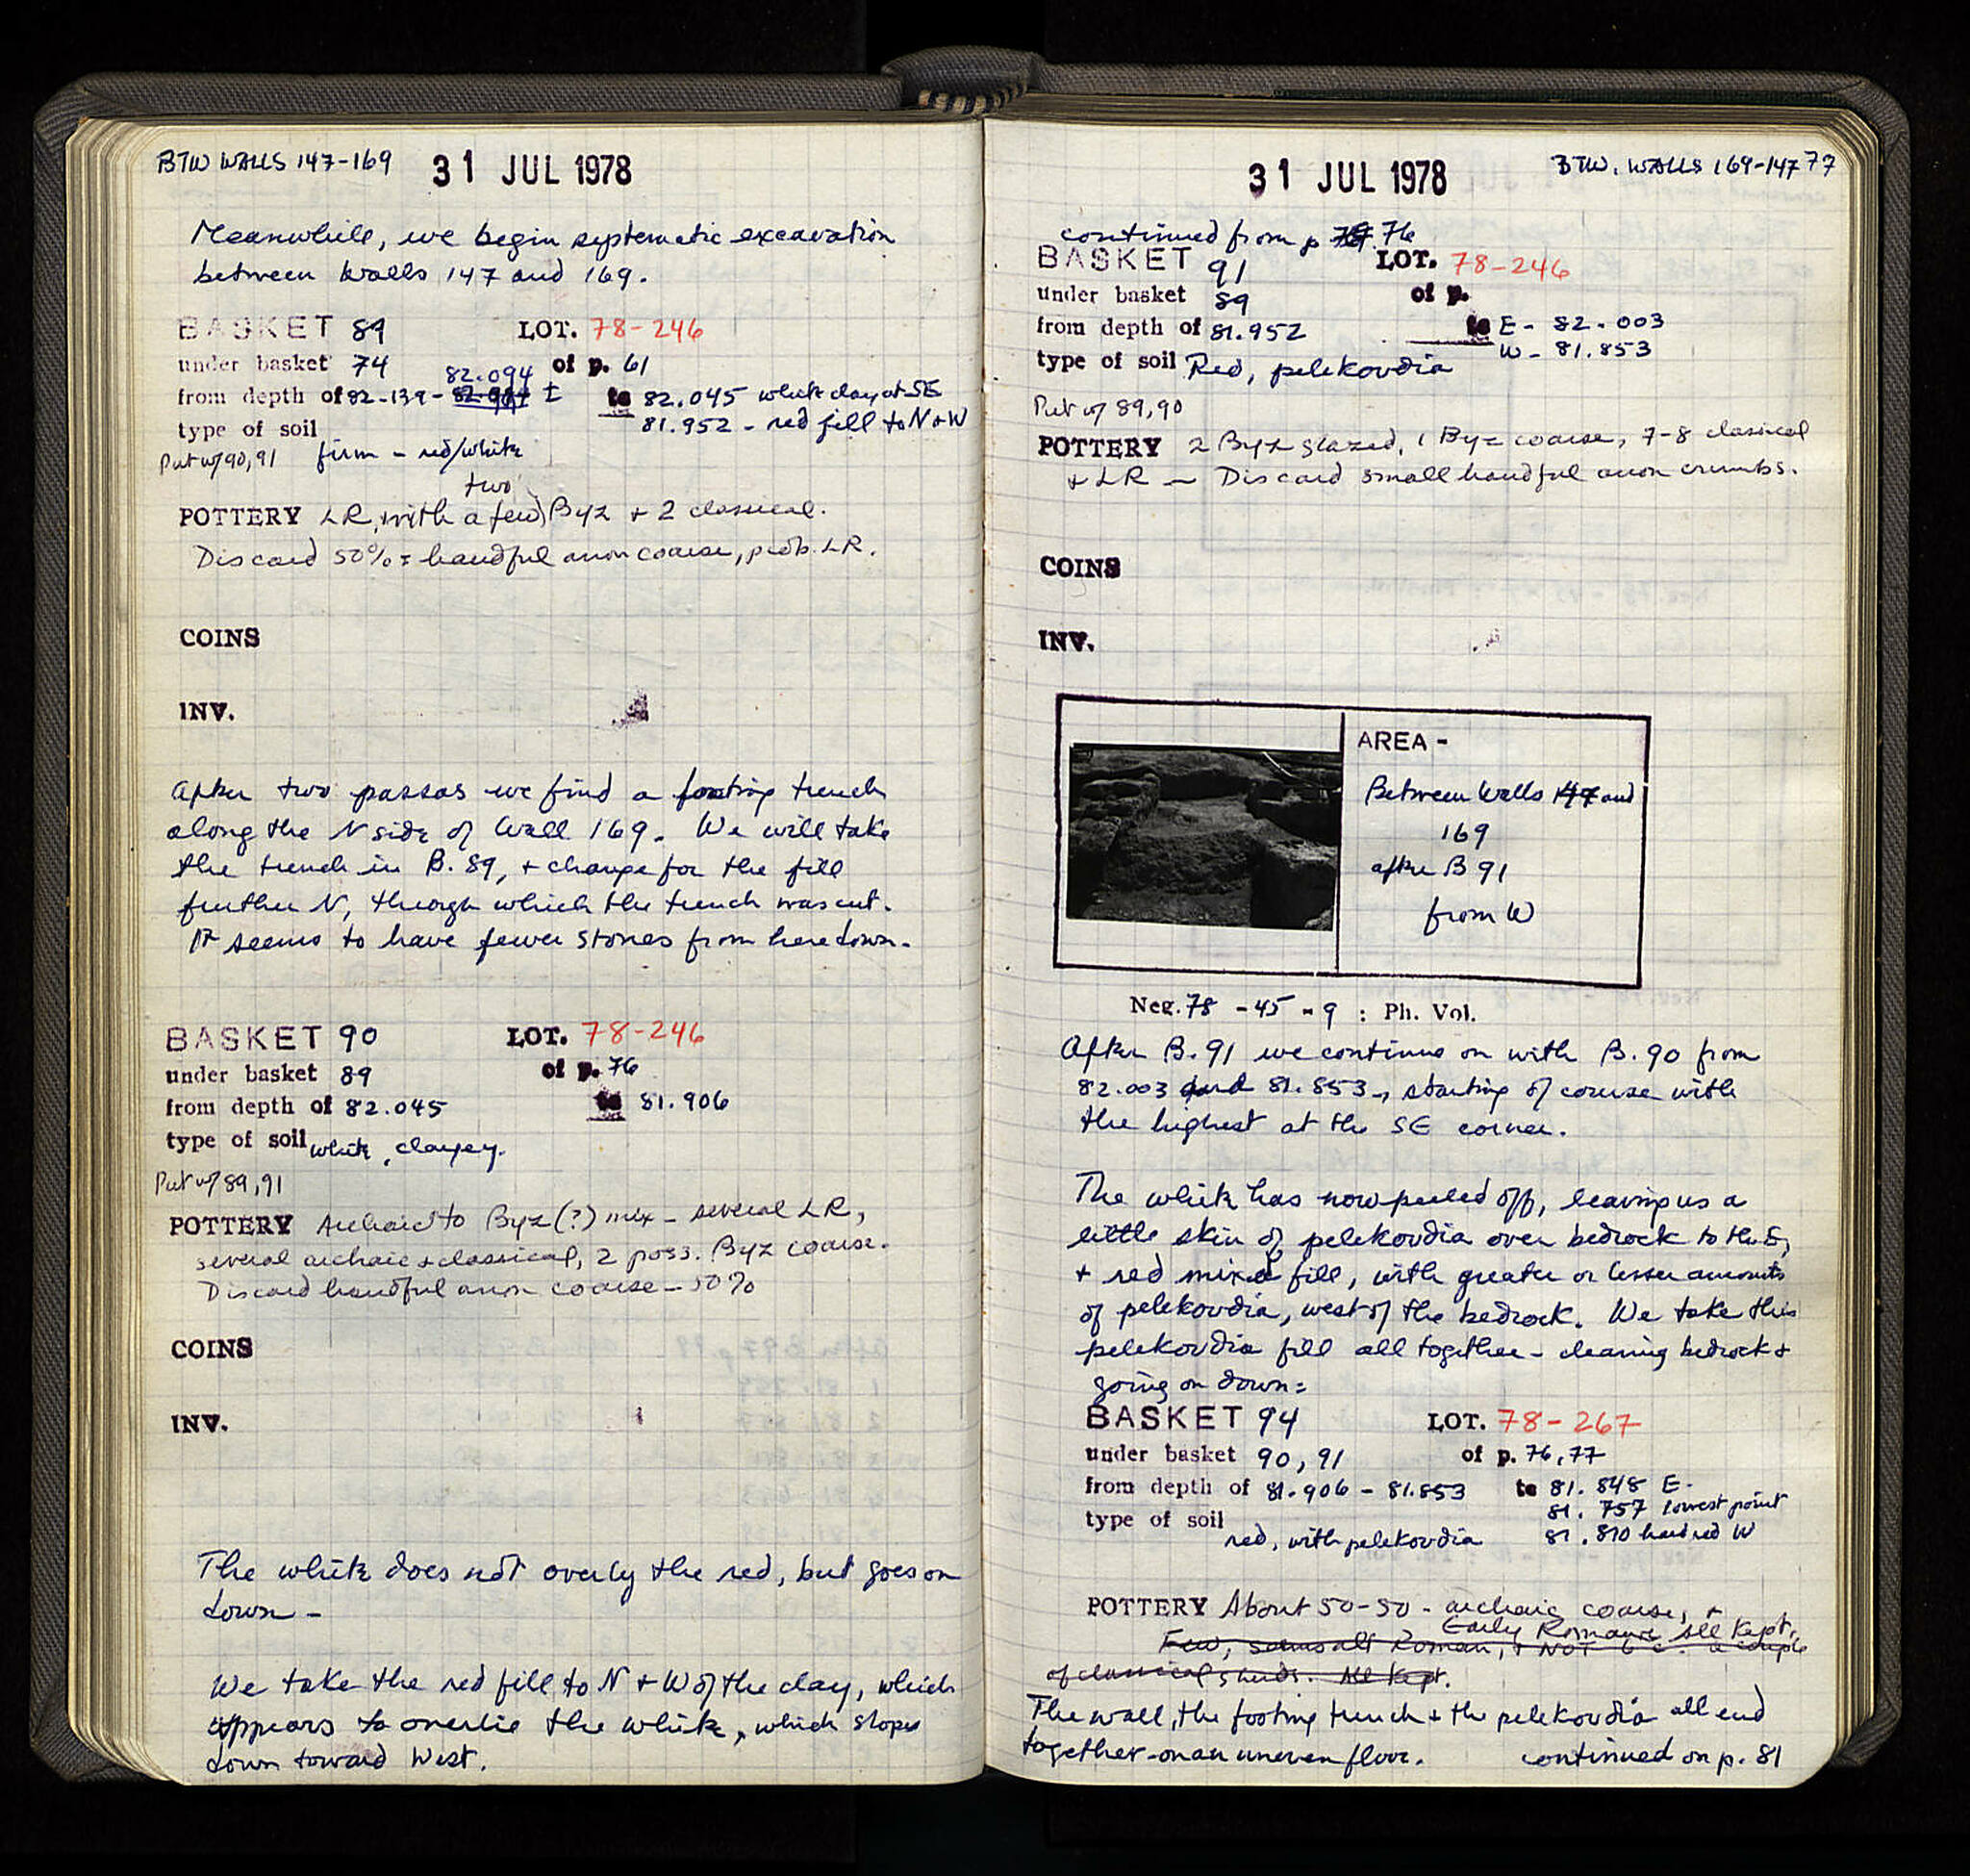 BTW WALLS 147-169 31 JUL 1978
Meanwhile, we begin systematic excavation
between Walls 147 and 169.
BASKET 89 LOT. 78-246
under basket 74 of p. 61
82.094
from depth of 82-139- to 82.045 white clay at SE
81.952 - red fill to N+W
type of soil
Put w/ 90, 91 firm - red/white
two
POTTERY LR, with a few Byz + 2 classical.
Discard 50% = handful anon coarse, prob. LR.
COINS
INV.
After two passes we find a footing trench
along the N side of Wall 169. We will take
the trench in B. 89, + change for the fill
further N, through which the trench was cut.
It seems to have fewer stones from here down.
BASKET 90 LOT. 78-246
under basket 89 of p. 76
from depth of 82.045 to 81.906
type of soil white, clayey.
Put w/ 89, 91
POTTERY Archaic to Byz (?) mix - several LR,
several archaic + classical, 2 poss. Byz coarse.
Discard handful anon coarse - 50%
COINS
INV.
The white does not overly the red, but goes on
down -
We take the red fill to N + W of the clay, which
appears to overlie the white, which slopes
down toward West.
31 JUL 1978 BTW. WALLS 169-147 77
continued from p 76
BASKET 91 LOT. 78-246
under basket 89 of p.
from depth of 81.952 to E- 82.003
W- 81.853
type of soil Red, pelekoudia
Put w/ 89, 90
POTTERY 2 Byz glazed, 1 Byz coarse, 7-8 classical
+ LR - Discard small handful anon crumbs.
COINS
INV.
AREA -
Between Walls 147 and
169
after B 91
from W
Neg. 78 -45 - 9 : Ph. Vol.
After B. 91 we continue on with B. 90 from
82.003 and 81.853, starting of course with
the highest at the SE corner.
The white has now peeled off, leaving us a
little skin of pelekoudia over bedrock to the E,
+ red mixed fill, with greater or lesser amounts
of pelekoudia, west of the bedrock. We take this
pelekoudia fill all together - cleaning bedrock +
going on down:
BASKET 94 LOT. 78-267
under basket 90, 91 of p. 76, 77
from depth of 81.906 - 81.853 to 81.848 E.
81.757 lowest point
type of soil 81.810 hard red W
red, with pelekoudia
POTTERY About 50-50 - archaic coarse, +
Early Roman. All kept.
Few, Roman, + NOT a couple
of classical sherds. All kept.
The wall, the footing trench + the pelekoudia all end
together - on an uneven floor. continued on p. 81